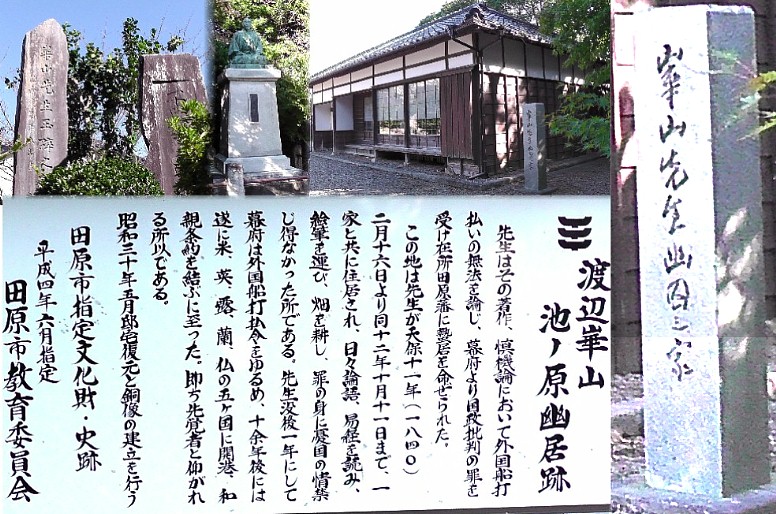 崋山先生玉砕之
渡辺崋山
池ノ原幽居跡
先生はその著作、慎機論において外国船打
払いの無法を論じ、幕府より国政批判の罪を
受け在所田原藩に蟄居を命ぜられた。
この地は先生が天保十一年(一八四〇)
二月十六日より同十二年十月十一日まで、一
家と共に住居され、日々論語、易経を読み、
絵筆を運び、畑を耕し、罪の身に憂国の情禁
じ得なかった所である。先生没後一年にして
幕府は外国船打払令をゆるめ、十余年後には
遂に米、英、露、蘭、仏の五ケ国に開港、和
親条約を結ぶに至った。即ち先覚者と仰がれ
る所以である。
昭和三十年五月邸宅復元と銅像の建立を行う
田原市指定文化財・史跡
平成四年六月指定
田原市教育委員会
崋山先生幽囚之家